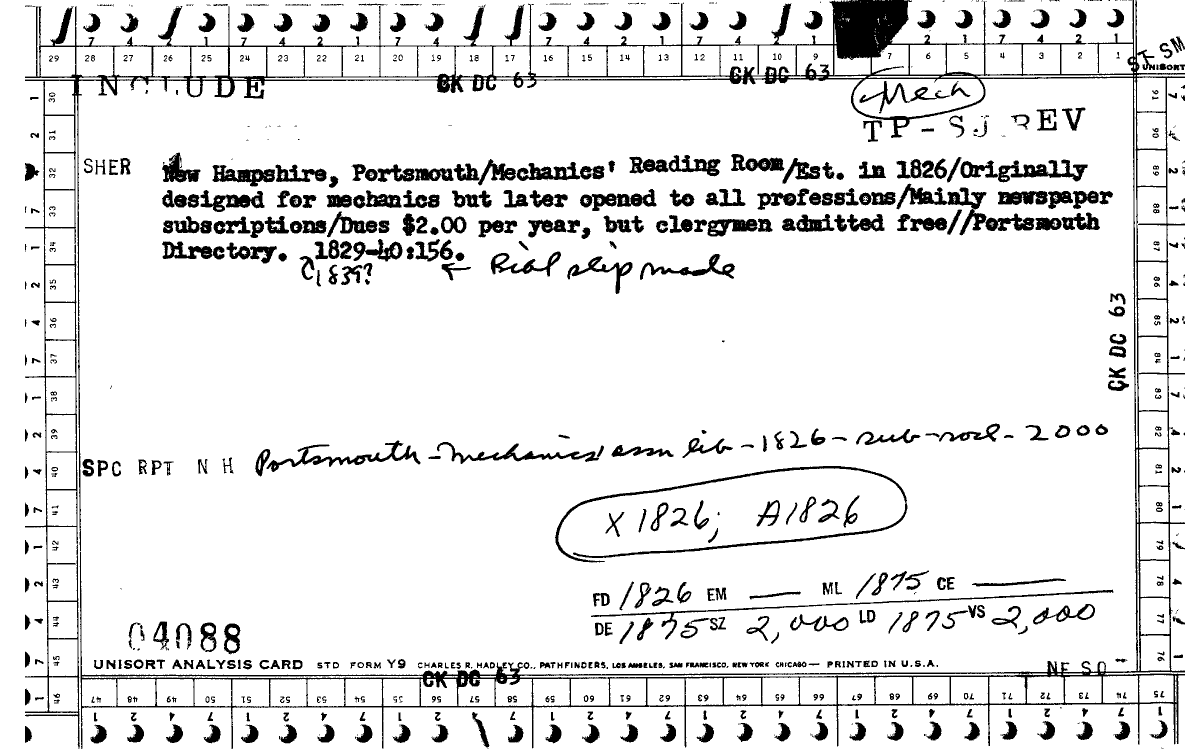 29 28 27 26 25 24 23 22 21 20 19 18 17 16 15 14 13 12 11 10 9 7 6 5 4 3 2 1
ST SM
UNISORT
INCLUDE
CK DC 63
CK DC 63
Mech
TP-SJ REV
SHER New Hampshire, Portsmouth/Mechanics' Reading Room/Est. in 1826/Originally
designed for mechanics but later opened to all professions/Mainly newspaper
subscriptions/Dues $2.00 per year, but clergymen admitted free//Portsmouth
Directory. 1829-40:156.
1839? ← slip made
CK DC 63
SPC RPT N H Portsmouth-mechanics' assn lib-1826-sub-socl-2000
X 1826; A1826
FD 1826 EM — ML 1875 CE —
DE 1875 SZ 2,000 LD 1875 VS 2,000
04088
UNISORT ANALYSIS CARD STD FORM Y9 CHARLES R. HADLEY CO., PATHFINDERS, LOS ANGELES, SAN FRANCISCO, NEW YORK CHICAGO — PRINTED IN U.S.A.
CK DC 63
NE SO
47 48 49 50 51 52 53 54 55 56 57 58 59 60 61 62 63 64 65 66 67 68 69 70 71 72 73 74 75